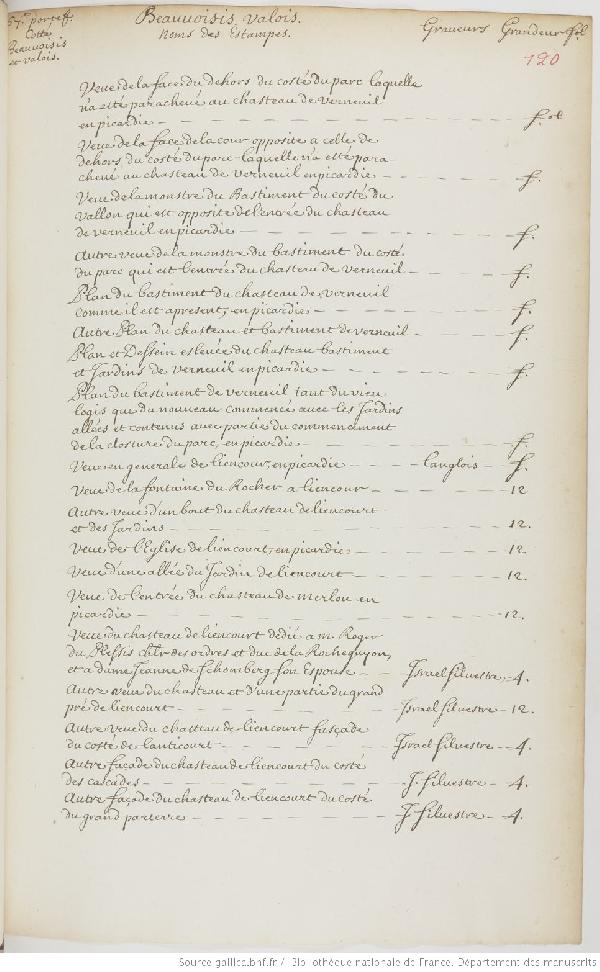 57e portef. Beauvoisis valois. Graveurs Grandeur fol
Cotte Noms des Estampes.
Beauvoisis
et valois. 120
Veue de la face du dehors du costé du parc laquelle
n'a esté parachevé au chasteau de verneuil
en picardie — f.ol
Veue de la face de la cour opposite a celle de
dehors du costé du parc laquelle n'a esté para
chevé au chasteau de verneuil en picardie — f.
Veue de la monstre du Bastiment du costé du
vallon qui est opposite de l'entrée du chasteau
de verneuil en picardie — f.
Autre veue de la monstre du bastiment du costé
du parc qui est l'entrée du chasteau de verneuil — f.
Plan du bastiment du chasteau de verneuil
comme il est apresent, en picardie — f.
Autre Plan du chasteau et bastiment de verneuil — f.
Plan et Dessein eslevée du chasteau bastiment
et Jardins de verneuil en picardie — f.
Plan du bastiment de verneuil tant du vieu
logis que du nouveau commencé avec les Jardins
allées et contenus avec partie du commencement
de la closture du parc, en picardie — f.
Veue en generale de liencour, en picardie — Langlois — f.
Veue de la fontaine du Rocher a liencour — 12
Autre veue d'un bout du chasteau de liencourt
et des Jardins — 12.
Veue de l'Eglise de liencourt, en picardie — 12.
Veue d'une allée du Jardin de liencourt — 12.
Veue de l'entrée du chasteau de merlou en
picardie — 12.
Veue du chasteau de liencourt dedié a m. Roger
du Plessis chlr des ordres et duc de la Rocheguyon,
et a dame Jeanne de Schomberg son Espouse — Israel silvestre — 4.
Autre veue du chasteau et d'une partie du grand
pré de liencourt — Israel silvestre — 12.
Autre veue du chasteau de liencourt fasçade
du costé de l'anticourt — Israel silvestre — 4.
Autre façade du chasteau de liencourt du costé
des cascades — J. silvestre — 4.
Autre façade du chasteau de liencourt du costé
du grand parterre — J. silvestre — 4.
Source gallica.bnf.fr / Bibliothèque nationale de France. Département des manuscrits